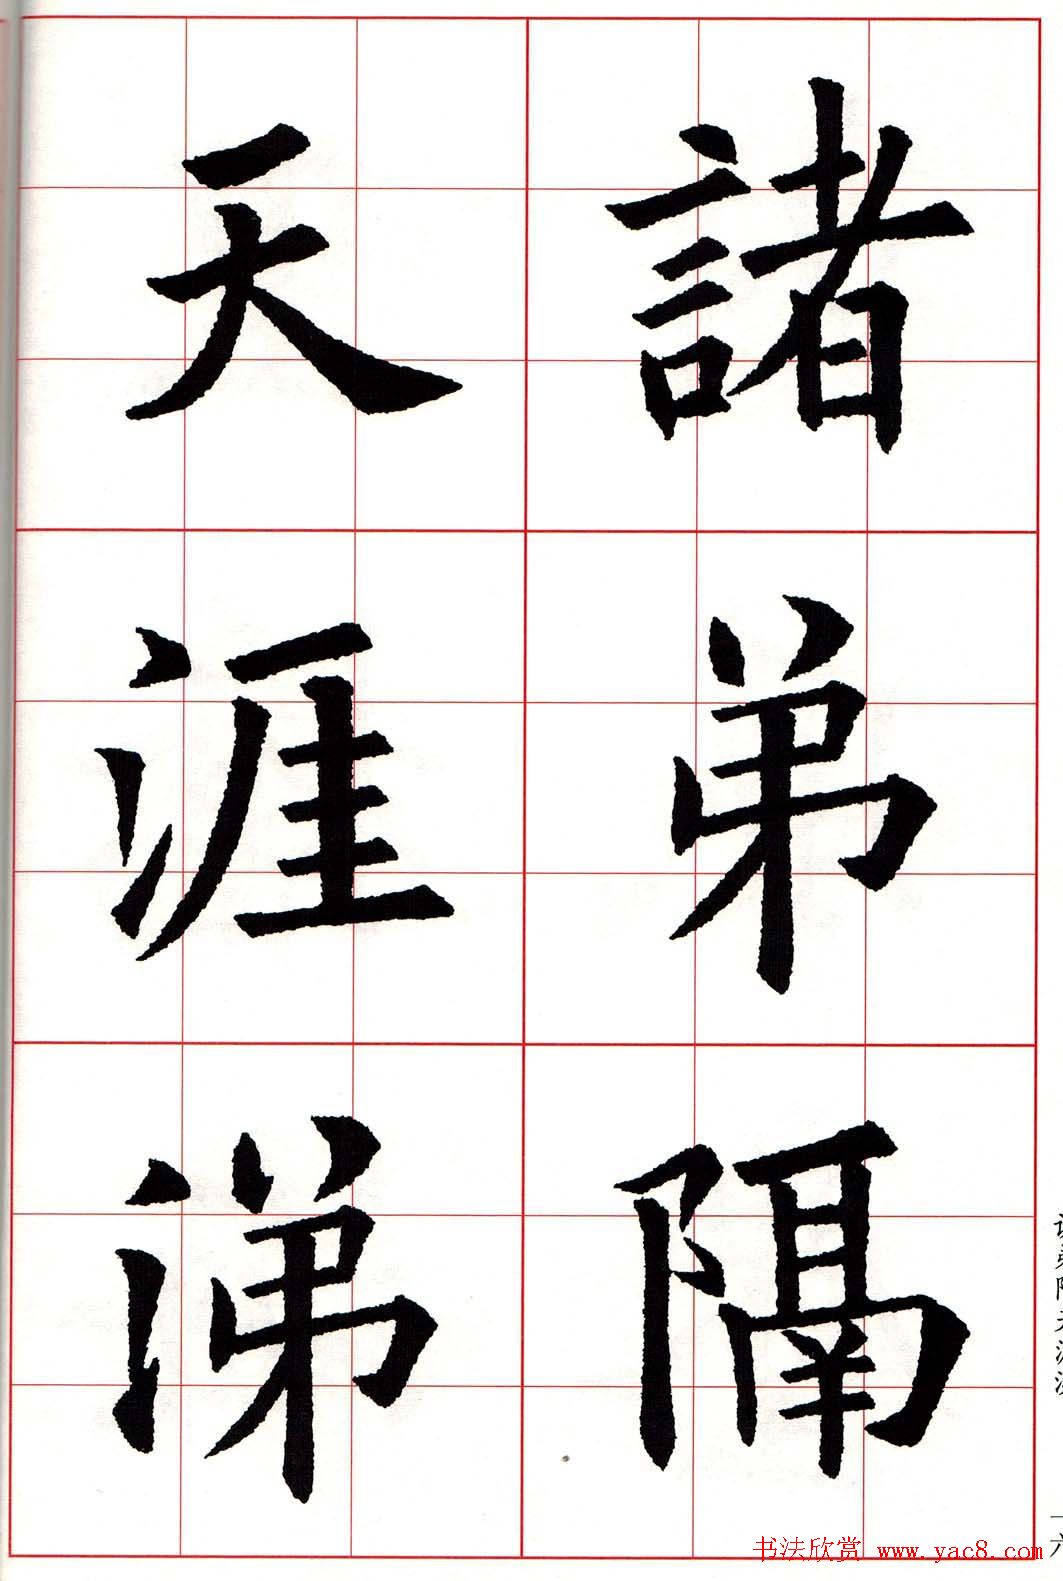 諸弟隔
天涯涕
书法欣赏 www.yac8.com